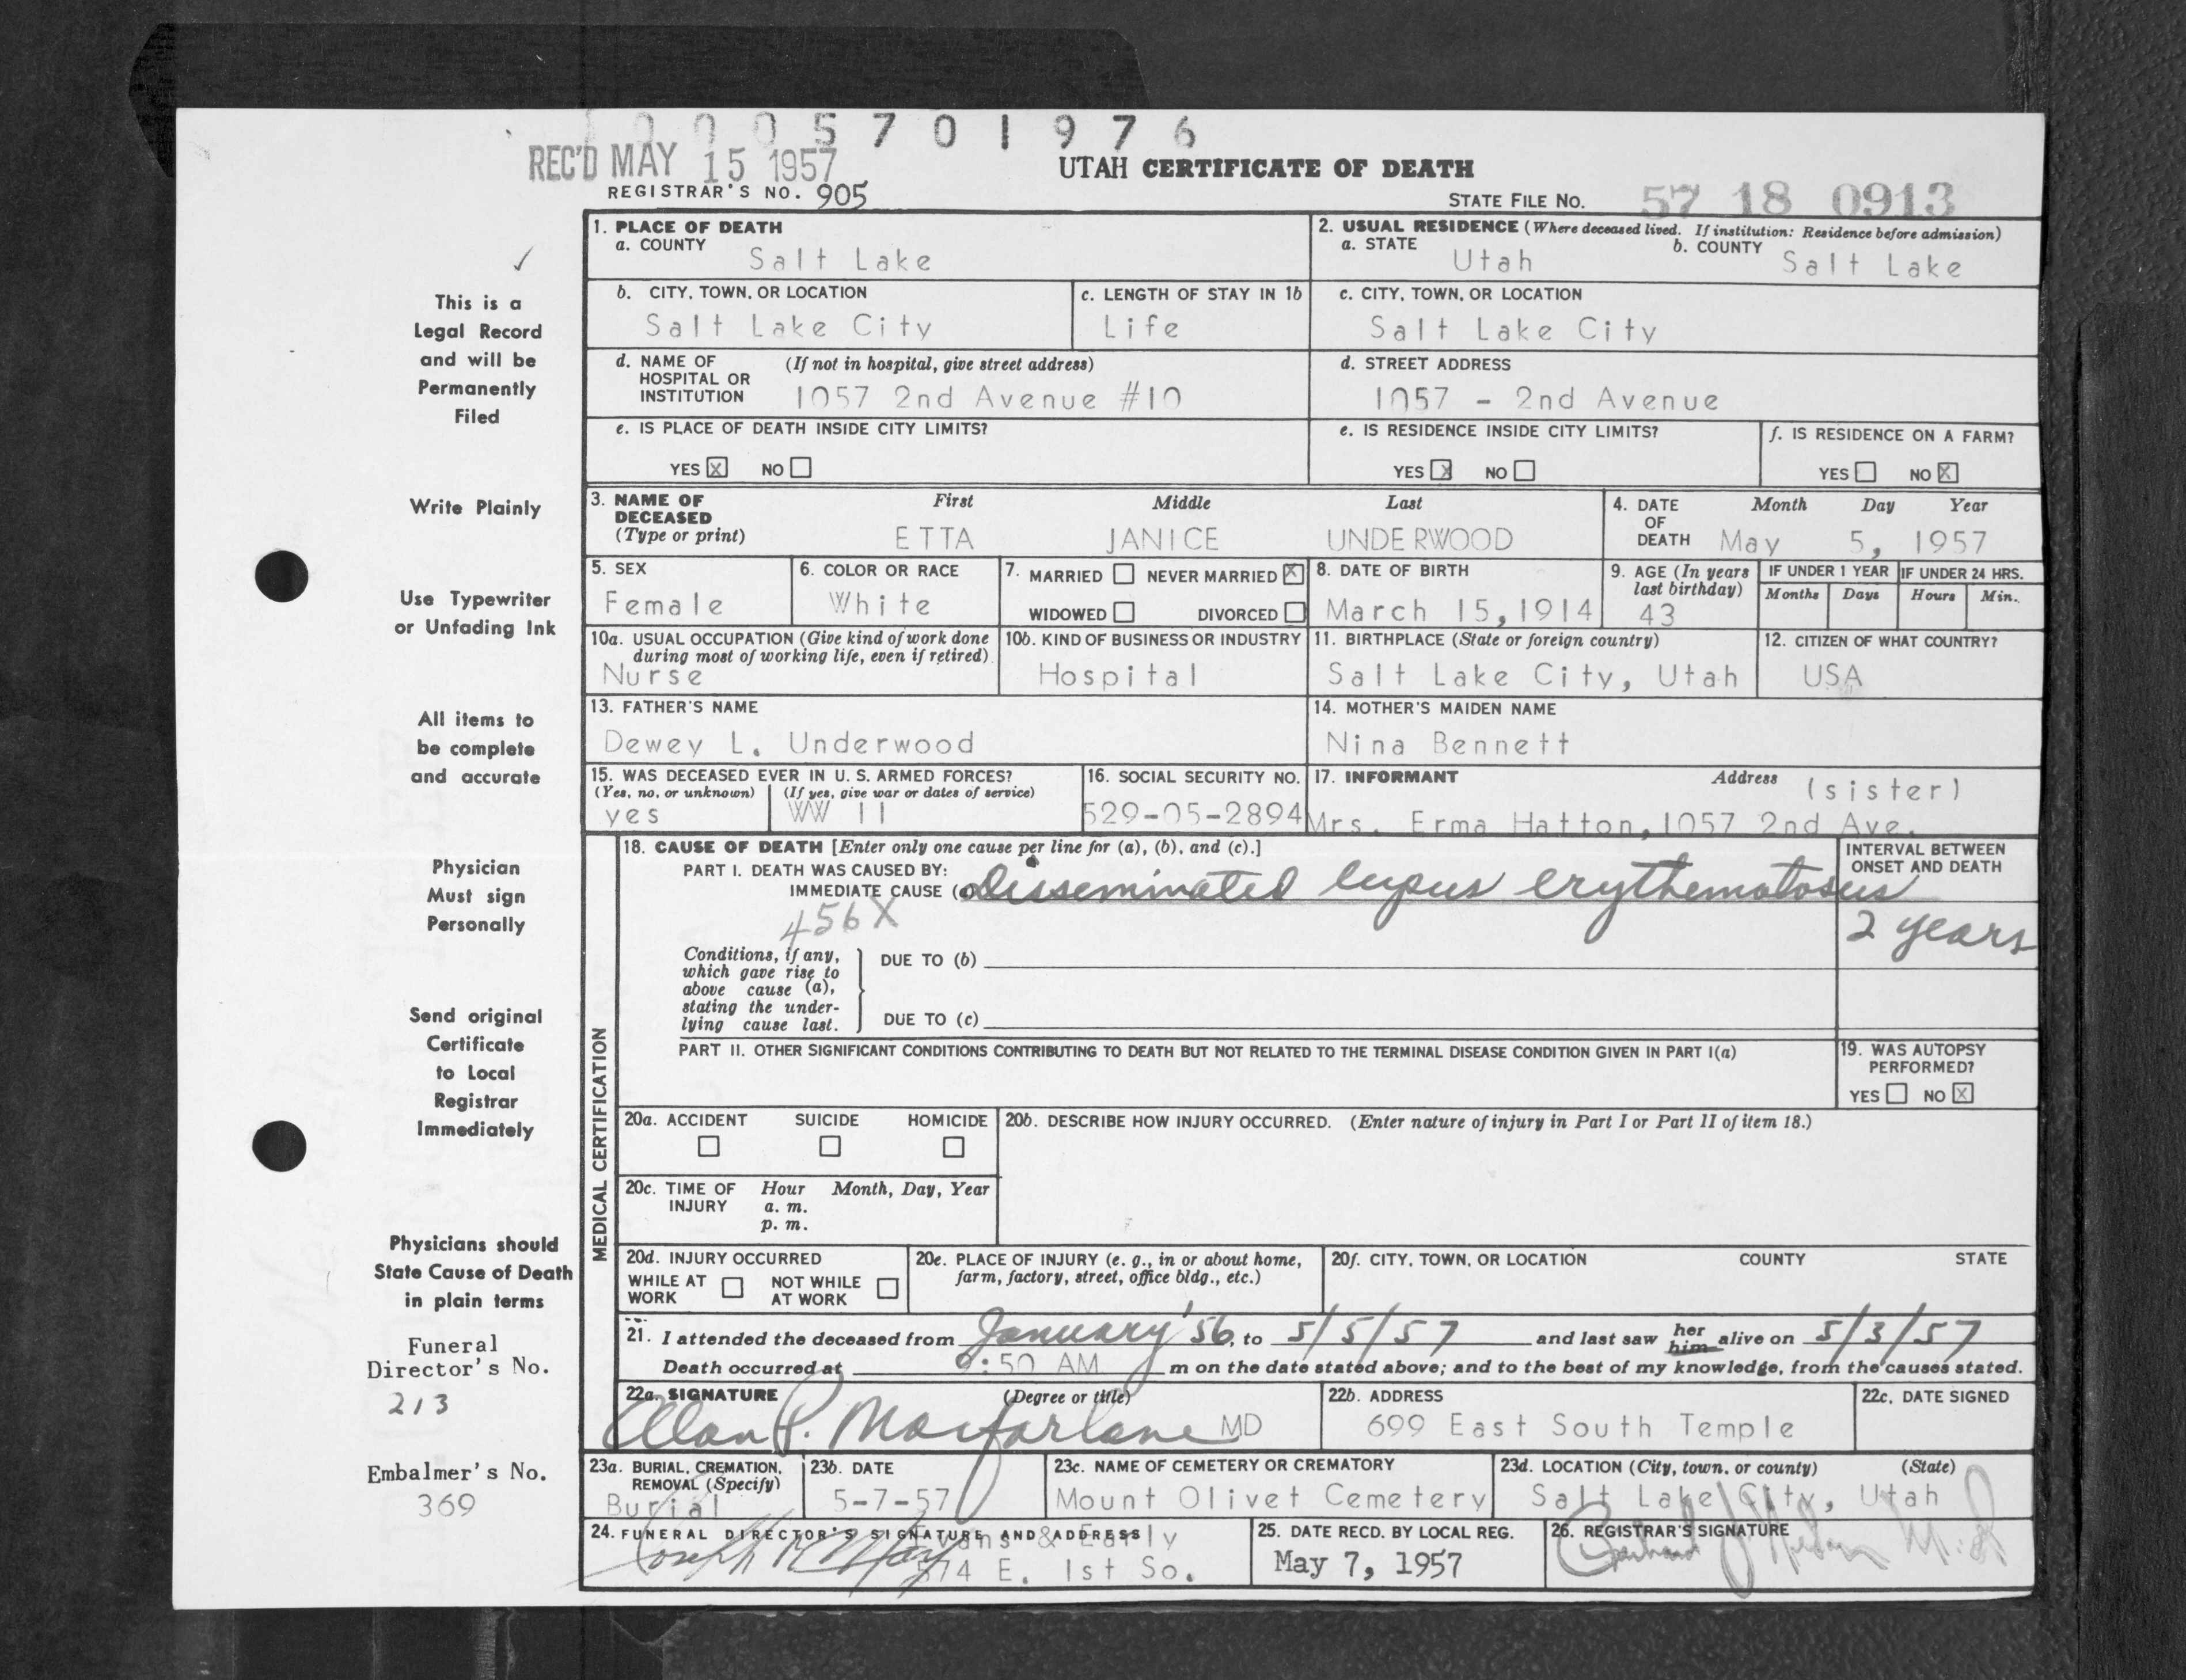 0005701976
REC'D MAY 15 1957
UTAH CERTIFICATE OF DEATH
REGISTRAR'S NO. 905
STATE FILE NO. 57 18 0913
This is a
Legal Record
and will be
Permanently
Filed
Write Plainly
Use Typewriter
or Unfading Ink
All items to
be complete
and accurate
Physician
Must sign
Personally
Send original
Certificate
to Local
Registrar
Immediately
Physicians should
State Cause of Death
in plain terms
Funeral
Director's No.
213
Embalmer's No.
369
1. PLACE OF DEATH
a. COUNTY
Salt Lake
2. USUAL RESIDENCE (Where deceased lived. If institution: Residence before admission)
a. STATE
Utah
b. COUNTY
Salt Lake
b. CITY, TOWN, OR LOCATION
Salt Lake City
c. LENGTH OF STAY IN 1b
Life
c. CITY, TOWN, OR LOCATION
Salt Lake City
d. NAME OF (If not in hospital, give street address)
HOSPITAL OR
INSTITUTION 1057 2nd Avenue #10
d. STREET ADDRESS
1057 - 2nd Avenue
e. IS PLACE OF DEATH INSIDE CITY LIMITS?
YES X NO
e. IS RESIDENCE INSIDE CITY LIMITS?
YES X NO
f. IS RESIDENCE ON A FARM?
YES NO X
3. NAME OF DECEASED
(Type or print)
First Middle Last
ETTA JANICE UNDERWOOD
4. DATE OF DEATH
Month Day Year
May 5, 1957
5. SEX
Female
6. COLOR OR RACE
White
7. MARRIED NEVER MARRIED X
WIDOWED DIVORCED
8. DATE OF BIRTH
March 15, 1914
9. AGE (In years
last birthday)
43
IF UNDER 1 YEAR
Months Days
IF UNDER 24 HRS.
Hours Min.
10a. USUAL OCCUPATION (Give kind of work done
during most of working life, even if retired)
Nurse
10b. KIND OF BUSINESS OR INDUSTRY
Hospital
11. BIRTHPLACE (State or foreign country)
Salt Lake City, Utah
12. CITIZEN OF WHAT COUNTRY?
USA
13. FATHER'S NAME
Dewey L. Underwood
14. MOTHER'S MAIDEN NAME
Nina Bennett
15. WAS DECEASED EVER IN U. S. ARMED FORCES?
(Yes, no, or unknown) (If yes, give war or dates of service)
yes WW II
16. SOCIAL SECURITY NO.
529-05-2894
17. INFORMANT Address
(sister)
Mrs. Erma Hatton, 1057 2nd Ave.
MEDICAL CERTIFICATION
18. CAUSE OF DEATH [Enter only one cause per line for (a), (b), and (c).]
PART I. DEATH WAS CAUSED BY:
IMMEDIATE CAUSE (a) Disseminated lupus erythematosus
456X
INTERVAL BETWEEN
ONSET AND DEATH
2 years
Conditions, if any,
which gave rise to
above cause (a),
stating the under-
lying cause last.
DUE TO (b)
DUE TO (c)
PART II. OTHER SIGNIFICANT CONDITIONS CONTRIBUTING TO DEATH BUT NOT RELATED TO THE TERMINAL DISEASE CONDITION GIVEN IN PART I(a)
19. WAS AUTOPSY
PERFORMED?
YES NO X
20a. ACCIDENT SUICIDE HOMICIDE
20b. DESCRIBE HOW INJURY OCCURRED. (Enter nature of injury in Part I or Part II of item 18.)
20c. TIME OF Hour Month, Day, Year
INJURY a. m.
p. m.
20d. INJURY OCCURRED
WHILE AT WORK NOT WHILE AT WORK
20e. PLACE OF INJURY (e. g., in or about home,
farm, factory, street, office bldg., etc.)
20f. CITY, TOWN, OR LOCATION COUNTY STATE
21. I attended the deceased from January '56, to 5/5/57 and last saw her him alive on 5/3/57
Death occurred at :50 AM m on the date stated above; and to the best of my knowledge, from the causes stated.
22a. SIGNATURE (Degree or title)
Allan P. Macfarlane MD
22b. ADDRESS
699 East South Temple
22c. DATE SIGNED
23a. BURIAL, CREMATION,
REMOVAL (Specify)
Burial
23b. DATE
5-7-57
23c. NAME OF CEMETERY OR CREMATORY
Mount Olivet Cemetery
23d. LOCATION (City, town, or county) (State)
Salt Lake City, Utah
24. FUNERAL DIRECTOR'S SIGNATURE AND ADDRESS
Evans & Early
574 E. 1st So.
25. DATE RECD. BY LOCAL REG.
May 7, 1957
26. REGISTRAR'S SIGNATURE